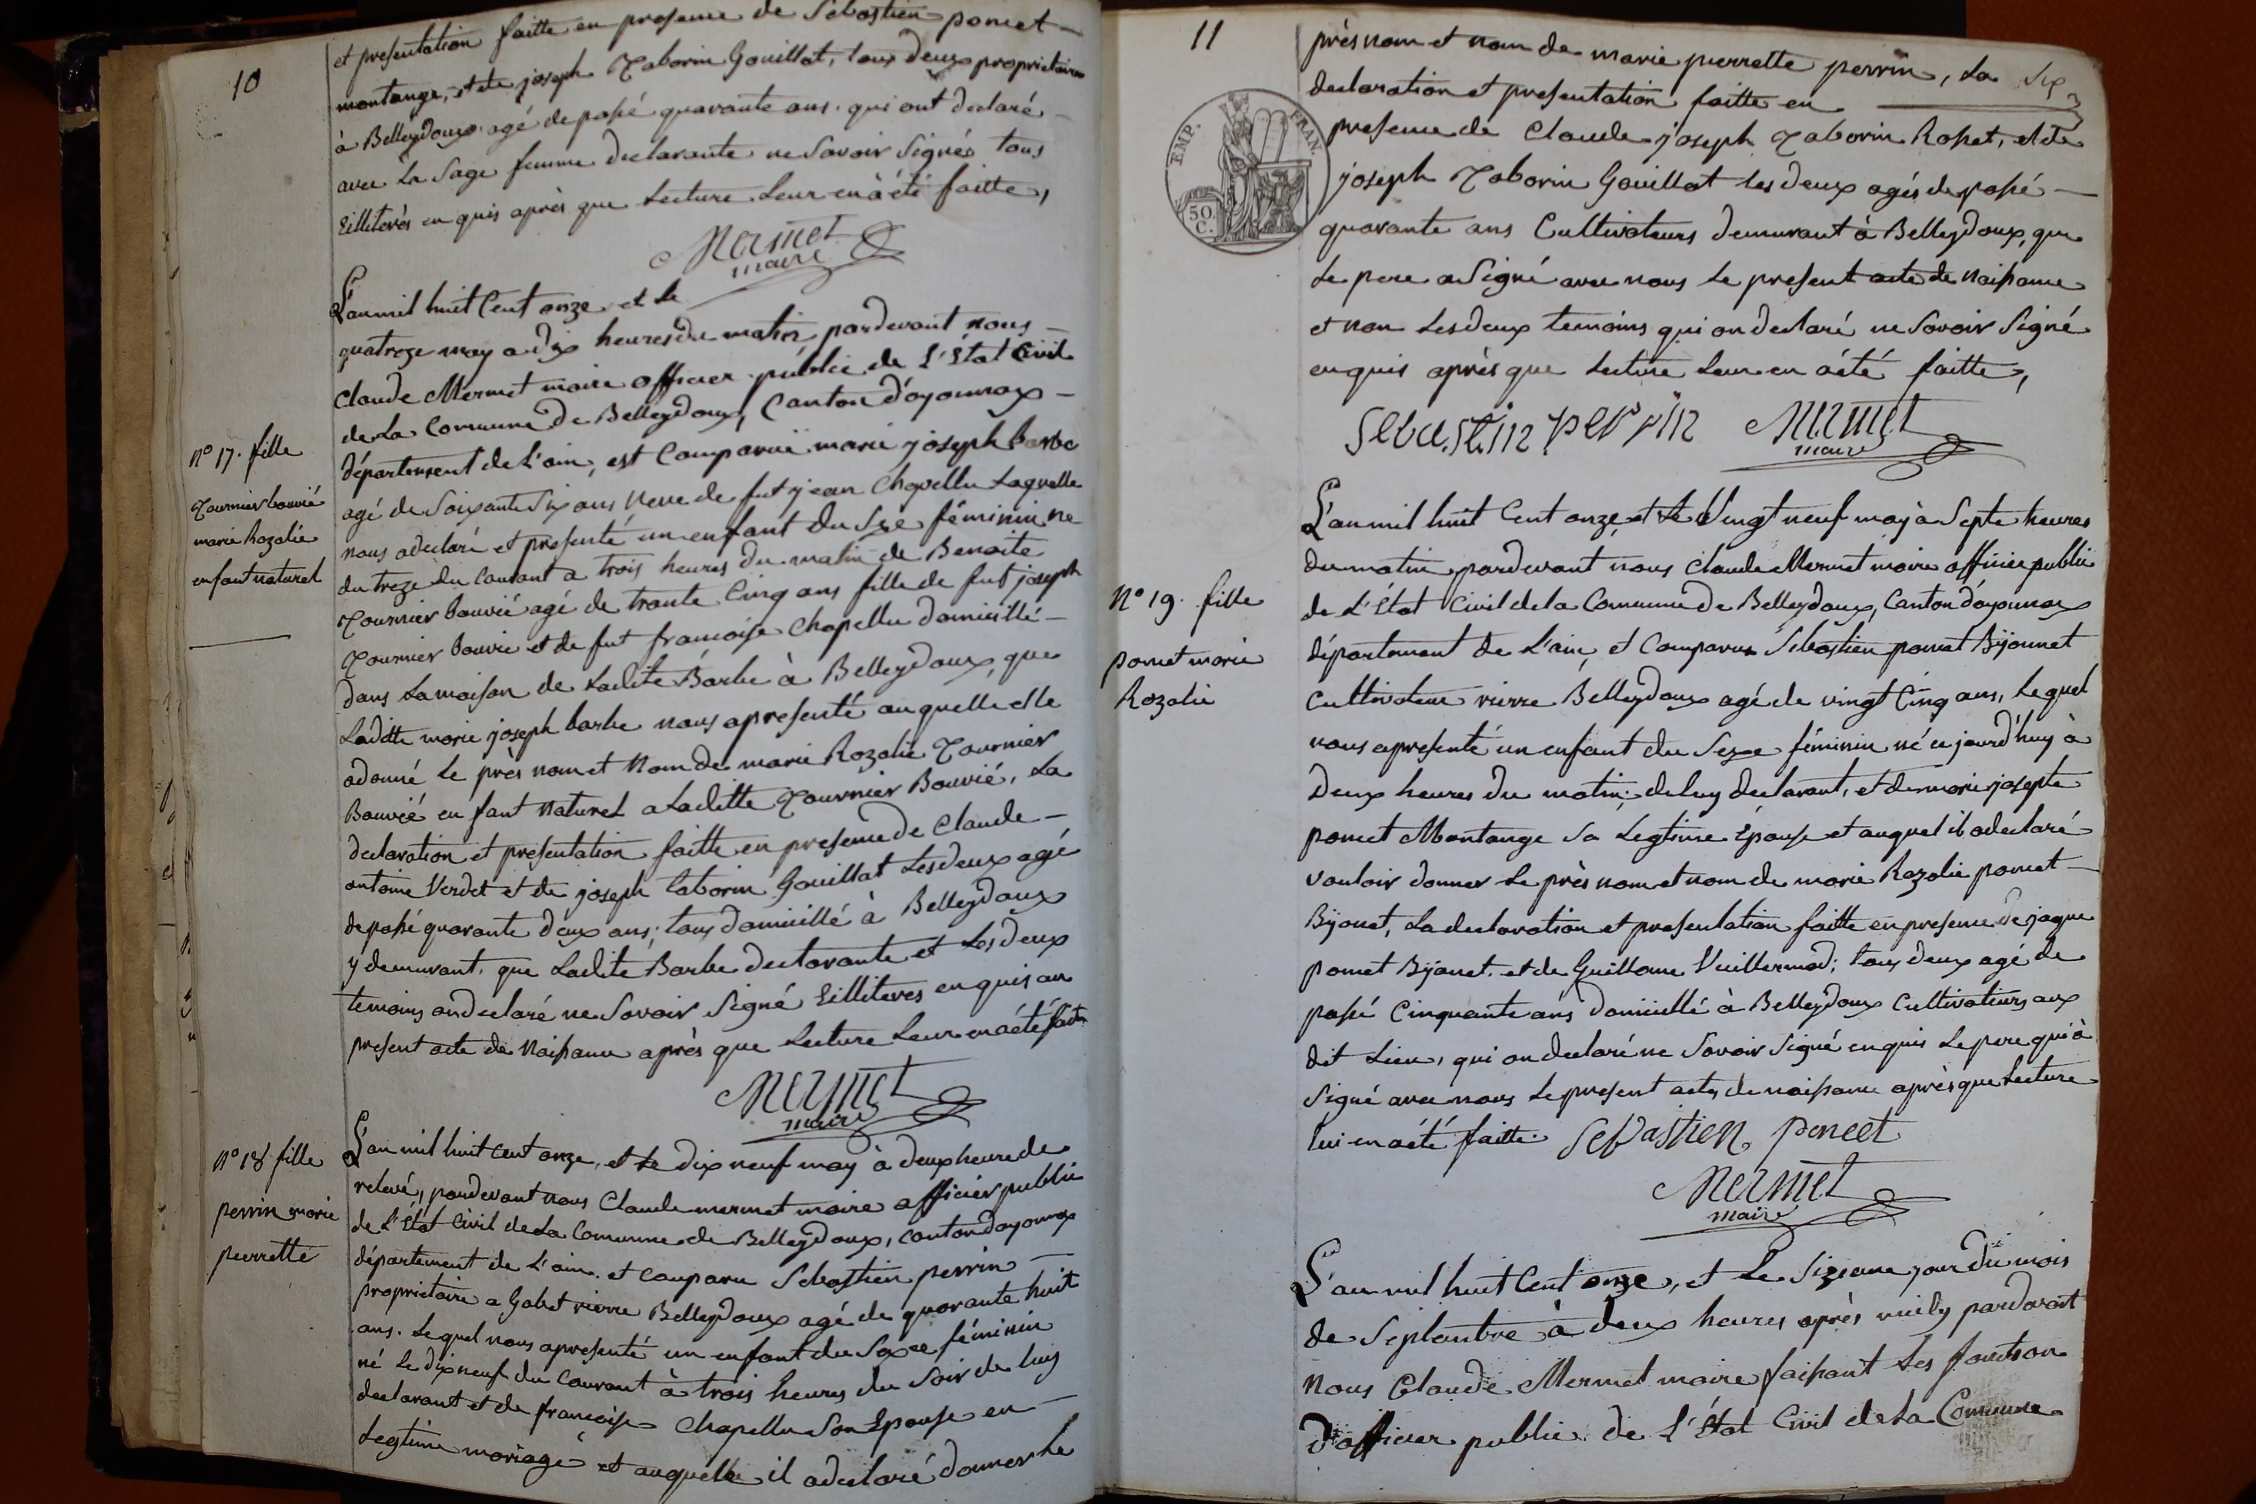 10
et presentation faitte en presence de Sebastien poncet
montange, et de joseph Taborin Gouillat, tous deux proprietaires
à Belleydoux agé de passé quarante ans. qui ont declaré
avec La Sage femme declarante ne Savoir Signés tous
Eilliterés en quis après que Lecture Leur en à été faitte,
Mermet
maire
L'an mil huit Cent onze et le
quatorze may a dix heures du matin pardevant nous
Claude Mermet maire officier public de L'Etat Civil
de La Commune de Belleydoux, Canton d'oyonnax
département de L'ain, est Comparuë marie joseph barbe
agé de Soixante Six ans Veuve de fut jean Chapellu Laquelle
nous a declaré et presenté un enfant du Sexe féminin ne
du treze du Courant a trois heures du matin de Benoite
Tournier bouvié agé de trante Cinq ans fille de fut joseph
Tournier bouvié et de fut francoise Chapellu domicillé
dans La maison de Ladite Barbe à Belleydoux, que
Laditte marie joseph barbe nous a presenté au quelle elle
a donné Le près nom et Nom de marie Rozalie Tournier
Bouvié enfant Naturel a Laditte Tournier Bouvié, La
declaration et presentation faitte en presence de Claude
antoine Verdet et de joseph Taborin Gouillat Les deux agé
de passé quarante deux ans, tous domicillé à Belleydoux
y demeurant, que Ladite Barbe declarante et Les deux
temoins on declaré ne Savoir Signé Eilliteres en quis au
present acte de Naissance après que Lecture Leur en a été faitte
Mermet
maire
nº 17. fille
Tournier bouvié
marie Rozalie
enfant naturel
L'an mil huit Cent onze, et le dix neuf may à deux heure de
relevé, pardevant nous Claude mermet maire officier public
de L'Etat Civil de La Commune de Belleydoux, canton doyonnax
département de L'ain. et comparu Sebastien perrin
proprietaire a Gobet rierre Belleydoux agé de quarante huit
ans. Le quel nous a presenté un enfant du Sexe féminin
né Le dix neuf du Courant à trois heures du Soir de luy
declarant et de francoise Chapellu Son Epouse en
Legtime mariage et au quelle il a declaré donner Le
nº 18 fille
perrin marie
pierrette
11
près nom et nom de marie pierrette perrin, La
declaration et presentation faitte en
presence de Claude joseph Taborin Rosset, et de
joseph Taborin Gouillat Les deux agés de passé
quarante ans Cultivateurs demeurant à Belleydoux, que
Le pere a Signé avec nous Le present acte de Naissance
et non Les deux temoins qui on declaré ne Savoir Signé
enquis après que Lecture Leur en a été faitte,
EMP. FRAN.
50 C.
Sebastin perrin
Mermet
maire
L'an mil huit Cent onze, et Le Vingt neuf may à Septe heures
du matin, pardevant nous Claude Mermet maire officier public
de L'Etat Civil de la Commune de Belleydoux, Canton d'oyonnax
département de L'ain, et Comparu Sebastien poncet Bijonnet
Cultivateur rierre Belleydoux agé de vingt Cinq ans, Le quel
nous a presenté un enfant du Sexe féminin né ce jourd'huy à
Deux heures du matin, de luy declarant, et de marie josepte
poncet Montange Sa Legtime Epouse et auquel il a declaré
vouloir donner Le près nom et nom de marie Rozalie poncet
Bijonet, La declaration et presentation faitte en presence de jaque
poncet Bijonet. et de Guillaume Vuillermod, tous deux agé de
passé Cinquante ans domicillé à Belleydoux Cultivateurs aux
dit Lieu, qui on declaré ne Savoir Signé enquis Le pere qui à
Signé avec nous Le present acte, de naissance après que Lecture
lui en a été faitte.
Sebastien Poncet
Mermet
maire
Nº 19. fille
poncet marie
Rozalie
L'an mil huit Cent onze, et Le Sizieme jour du mois
de Septembre à deux heures après midy pardevant
Nous Claude Mermet maire faissant Les fonction
d'officier public de L'Etat Civil de La Commune